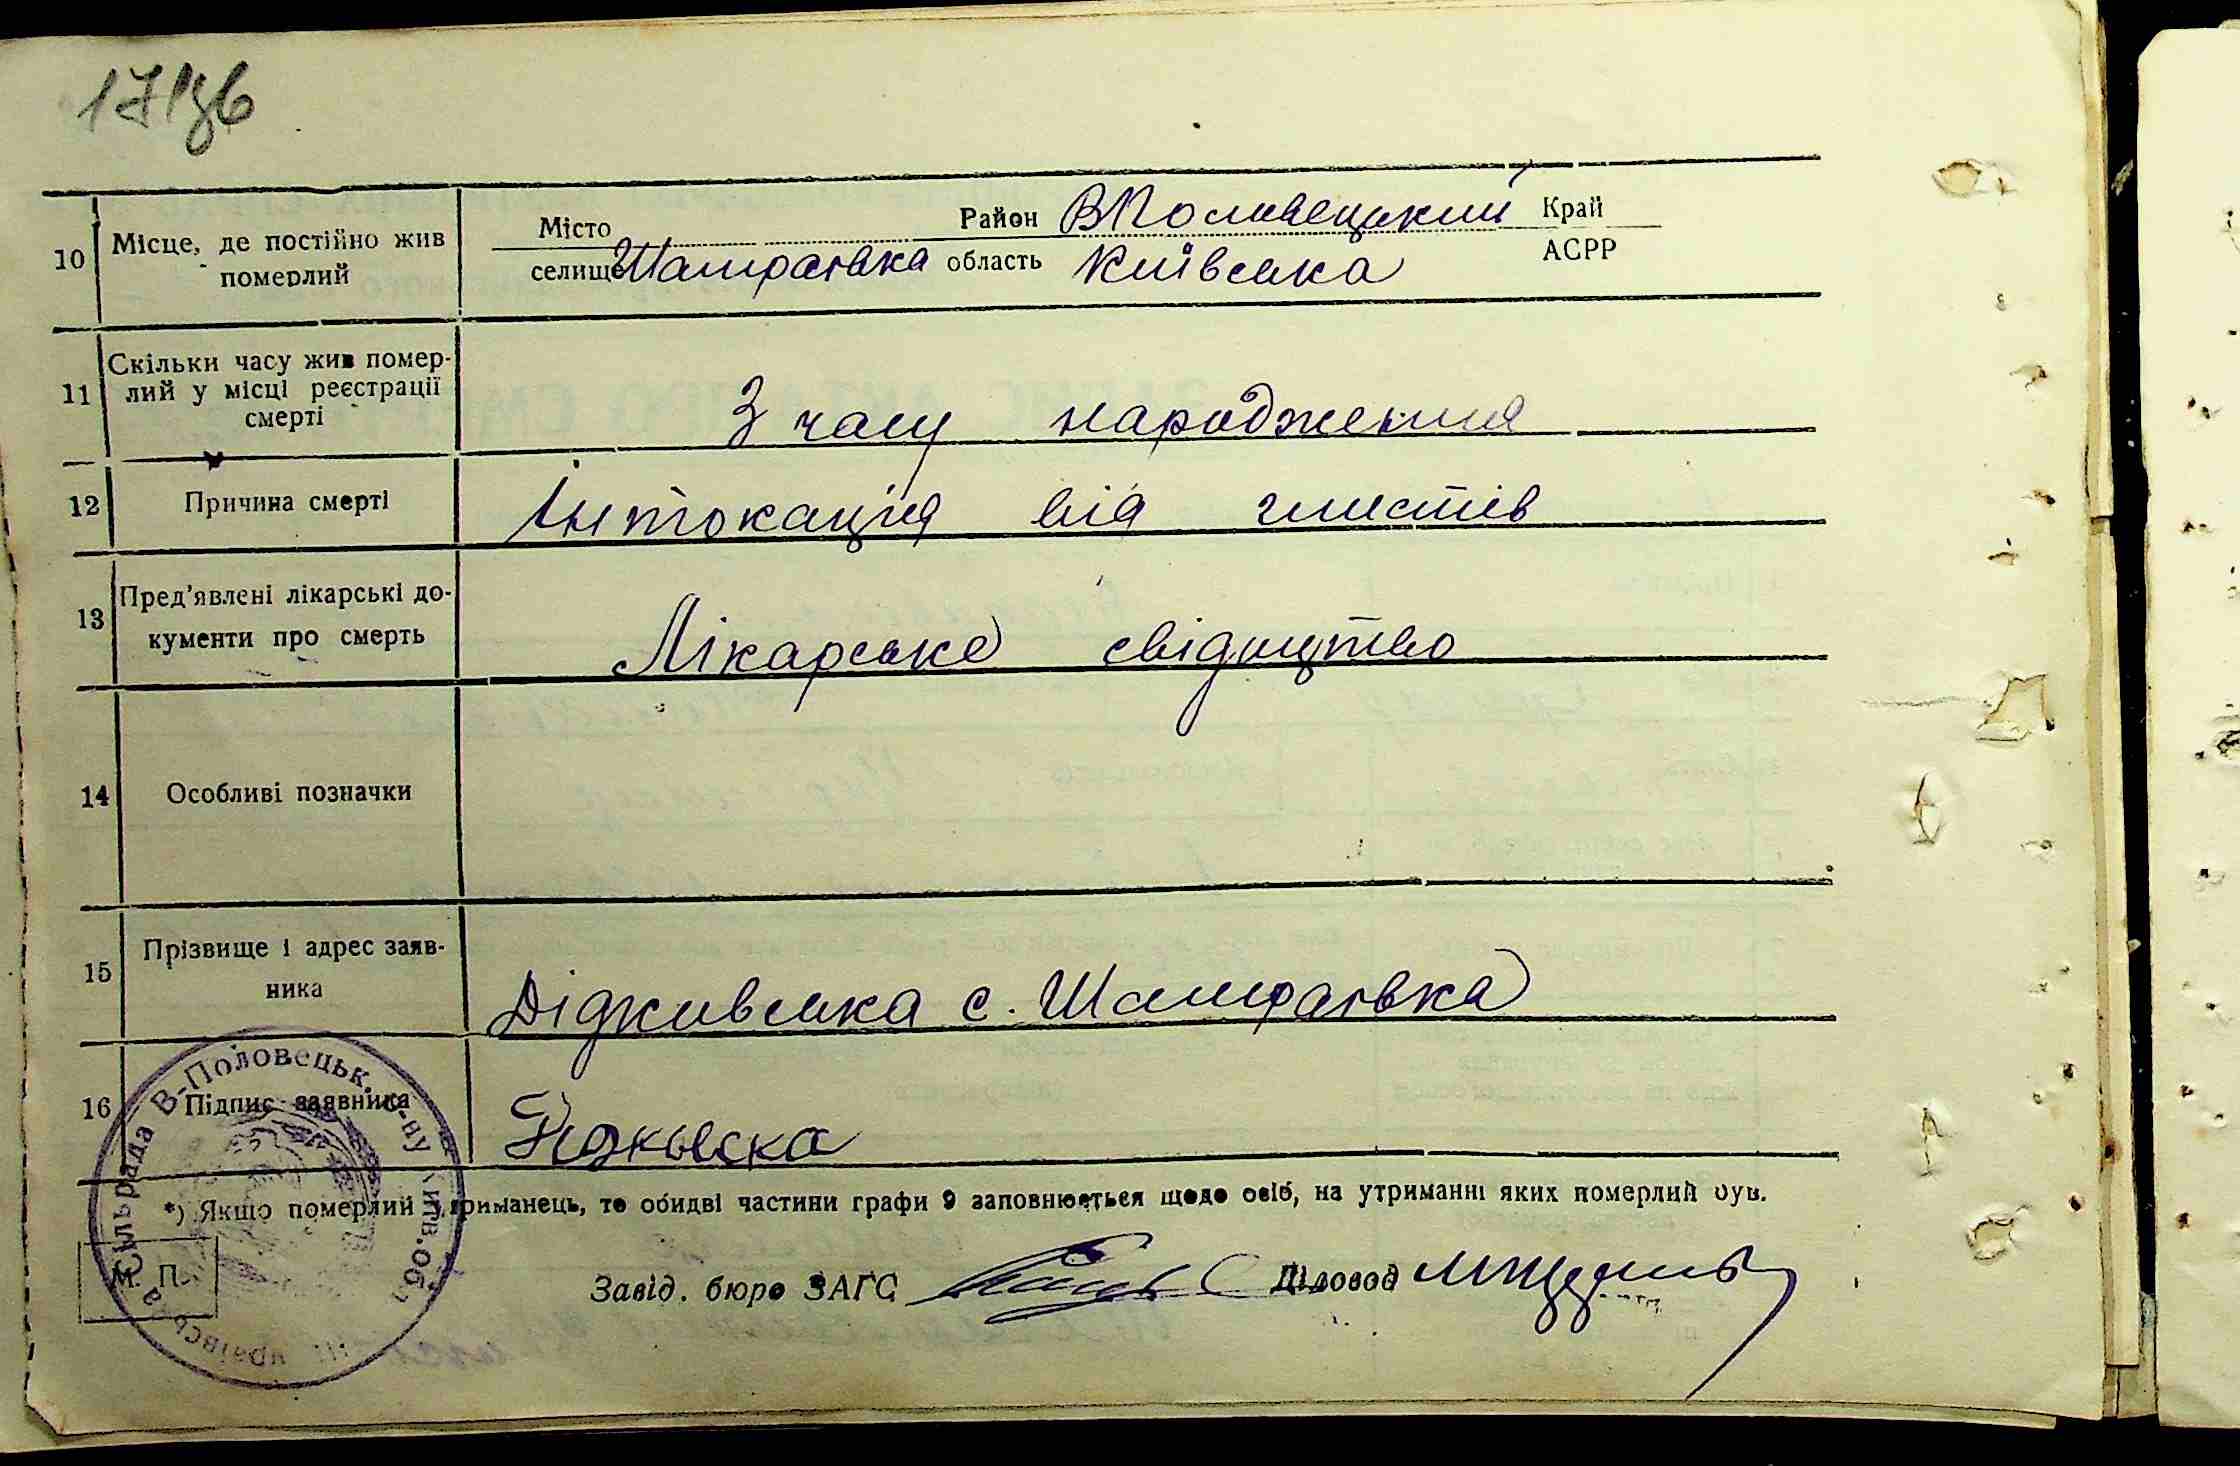 171зв
10 Місце, де постійно жив померлий
Місто Район ВПоловецький Край
селище Шамраївка область Київська АСРР
11 Скільки часу жив помер-
лий у місці реєстрації
смерті
З часу народження
12 Причина смерті Інтокація від глистів
13 Пред'явлені лікарські до-
кументи про смерть
Лікарське свідицтво
14 Особливі позначки
15 Прізвище і адрес заяв-
ника
Дідкивська с. Шамраївка
16 Підпис заявника
*) Якщо померлий утриманець, то обидві частини графи 9 заповнюється щодо осіб, на утриманні яких померлий був.
М. П.
Завід. бюро ЗАГС Діловод
Сільрада В-Половецьк. р-ну Київ. обл